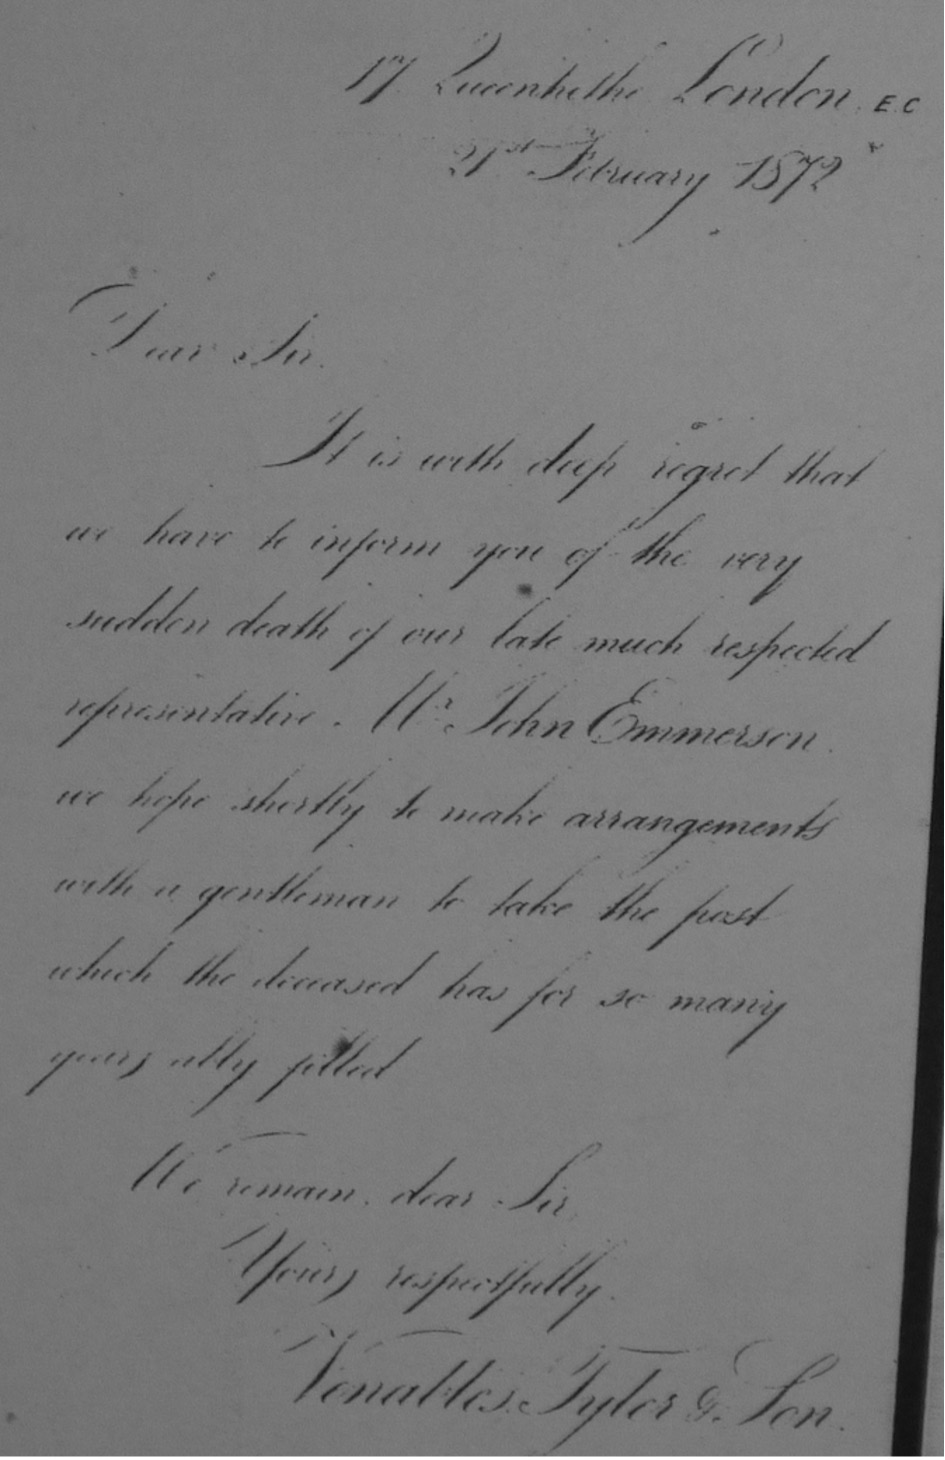 17 Queenhithe London. E.C
21st February 1872
Dear Sir.
It is with deep regret that
we have to inform you of the very
sudden death of our late much respected
representative. Mr John Emmerson.
we hope shortly to make arrangements
with a gentleman to take the post
which the deceased has for so many
years ably filled
We remain, dear Sir
Yours respectfully.
Venables. Tyler & Son.